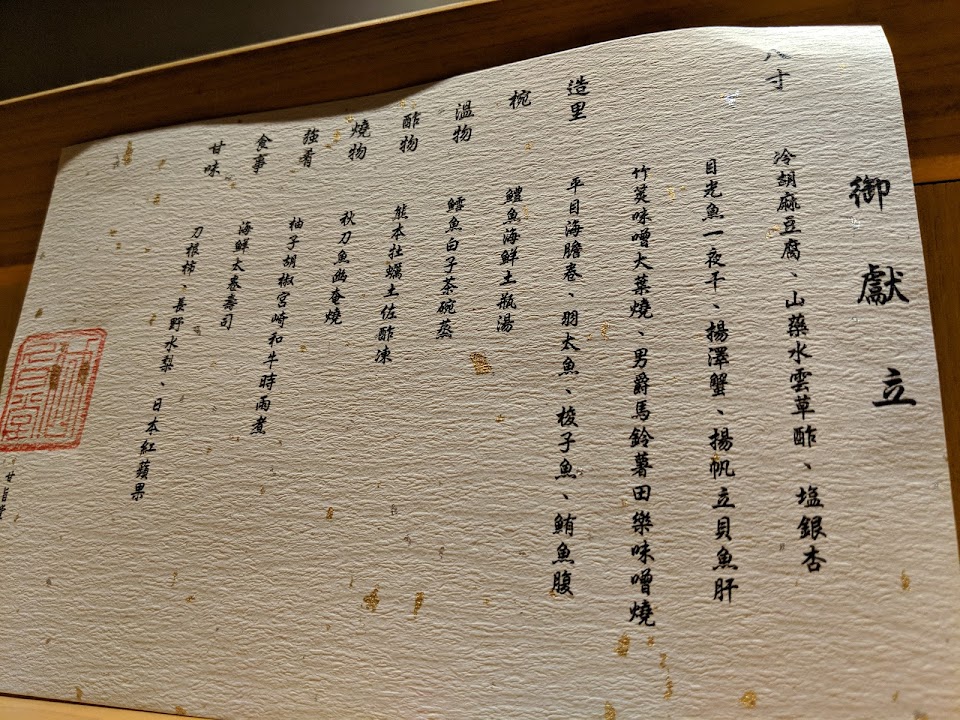 御獻立
八寸
冷胡麻豆腐、山藥水雲草酢、塩銀杏
目光魚一夜干、揚澤蟹、揚帆立貝魚肝
竹筴味噌大葉燒、男爵馬鈴薯田樂味噌燒
造里
平目海膽卷、羽太魚、梭子魚、鮪魚腹
椀
鱧魚海鮮土瓶湯
溫物
鱈魚白子茶碗蒸
酢物
熊本牡蠣土佐酢凍
燒物
秋刀魚幽奄燒
強肴
柚子胡椒宮崎和牛時雨煮
食事
海鮮太卷壽司
甘味
刀根柿、長野水梨、日本紅蘋果